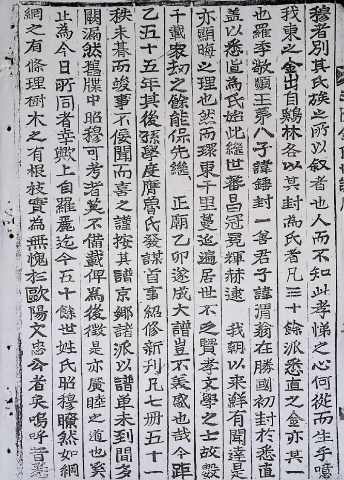 穆者別其氏族之所以叙者也人而不知此孝悌之心何從而生乎噫
我東之金出自鷄林各以其封為氏者凡三十餘派悉直之金亦其一
也羅季敬順王第八子諱錘封一善君子諱渭翁在勝國初封於悉直
盖以悉直為氏始此継世番昌冠冕輝赫逮 我朝以來鮮有聞達是
亦顯晦之理也然而環東千里蔓迤遍居世不乏賢孝文學之士故數
千載衆劫之餘能保先継 正廟乙卯遂成大譜豈不美盛也哉今距
乙五十五年其後孫學度膺魯氏發謀首事紹修新刊凡七冊五十一
秩未朞而竣事不佞聞而喜之謹按其譜京鄕諸派以譜单未到間多
闕漏然舊牒中昭穆可考者莫不備載俾為後徵是亦廣睦之道也奚
止為今日所同者幸歟上自羅麗迄今五十餘世姓氏昭穆瞭然如綱
網之有條理樹木之有根枝實為無愧於歐陽文忠公者矣嗚呼昔